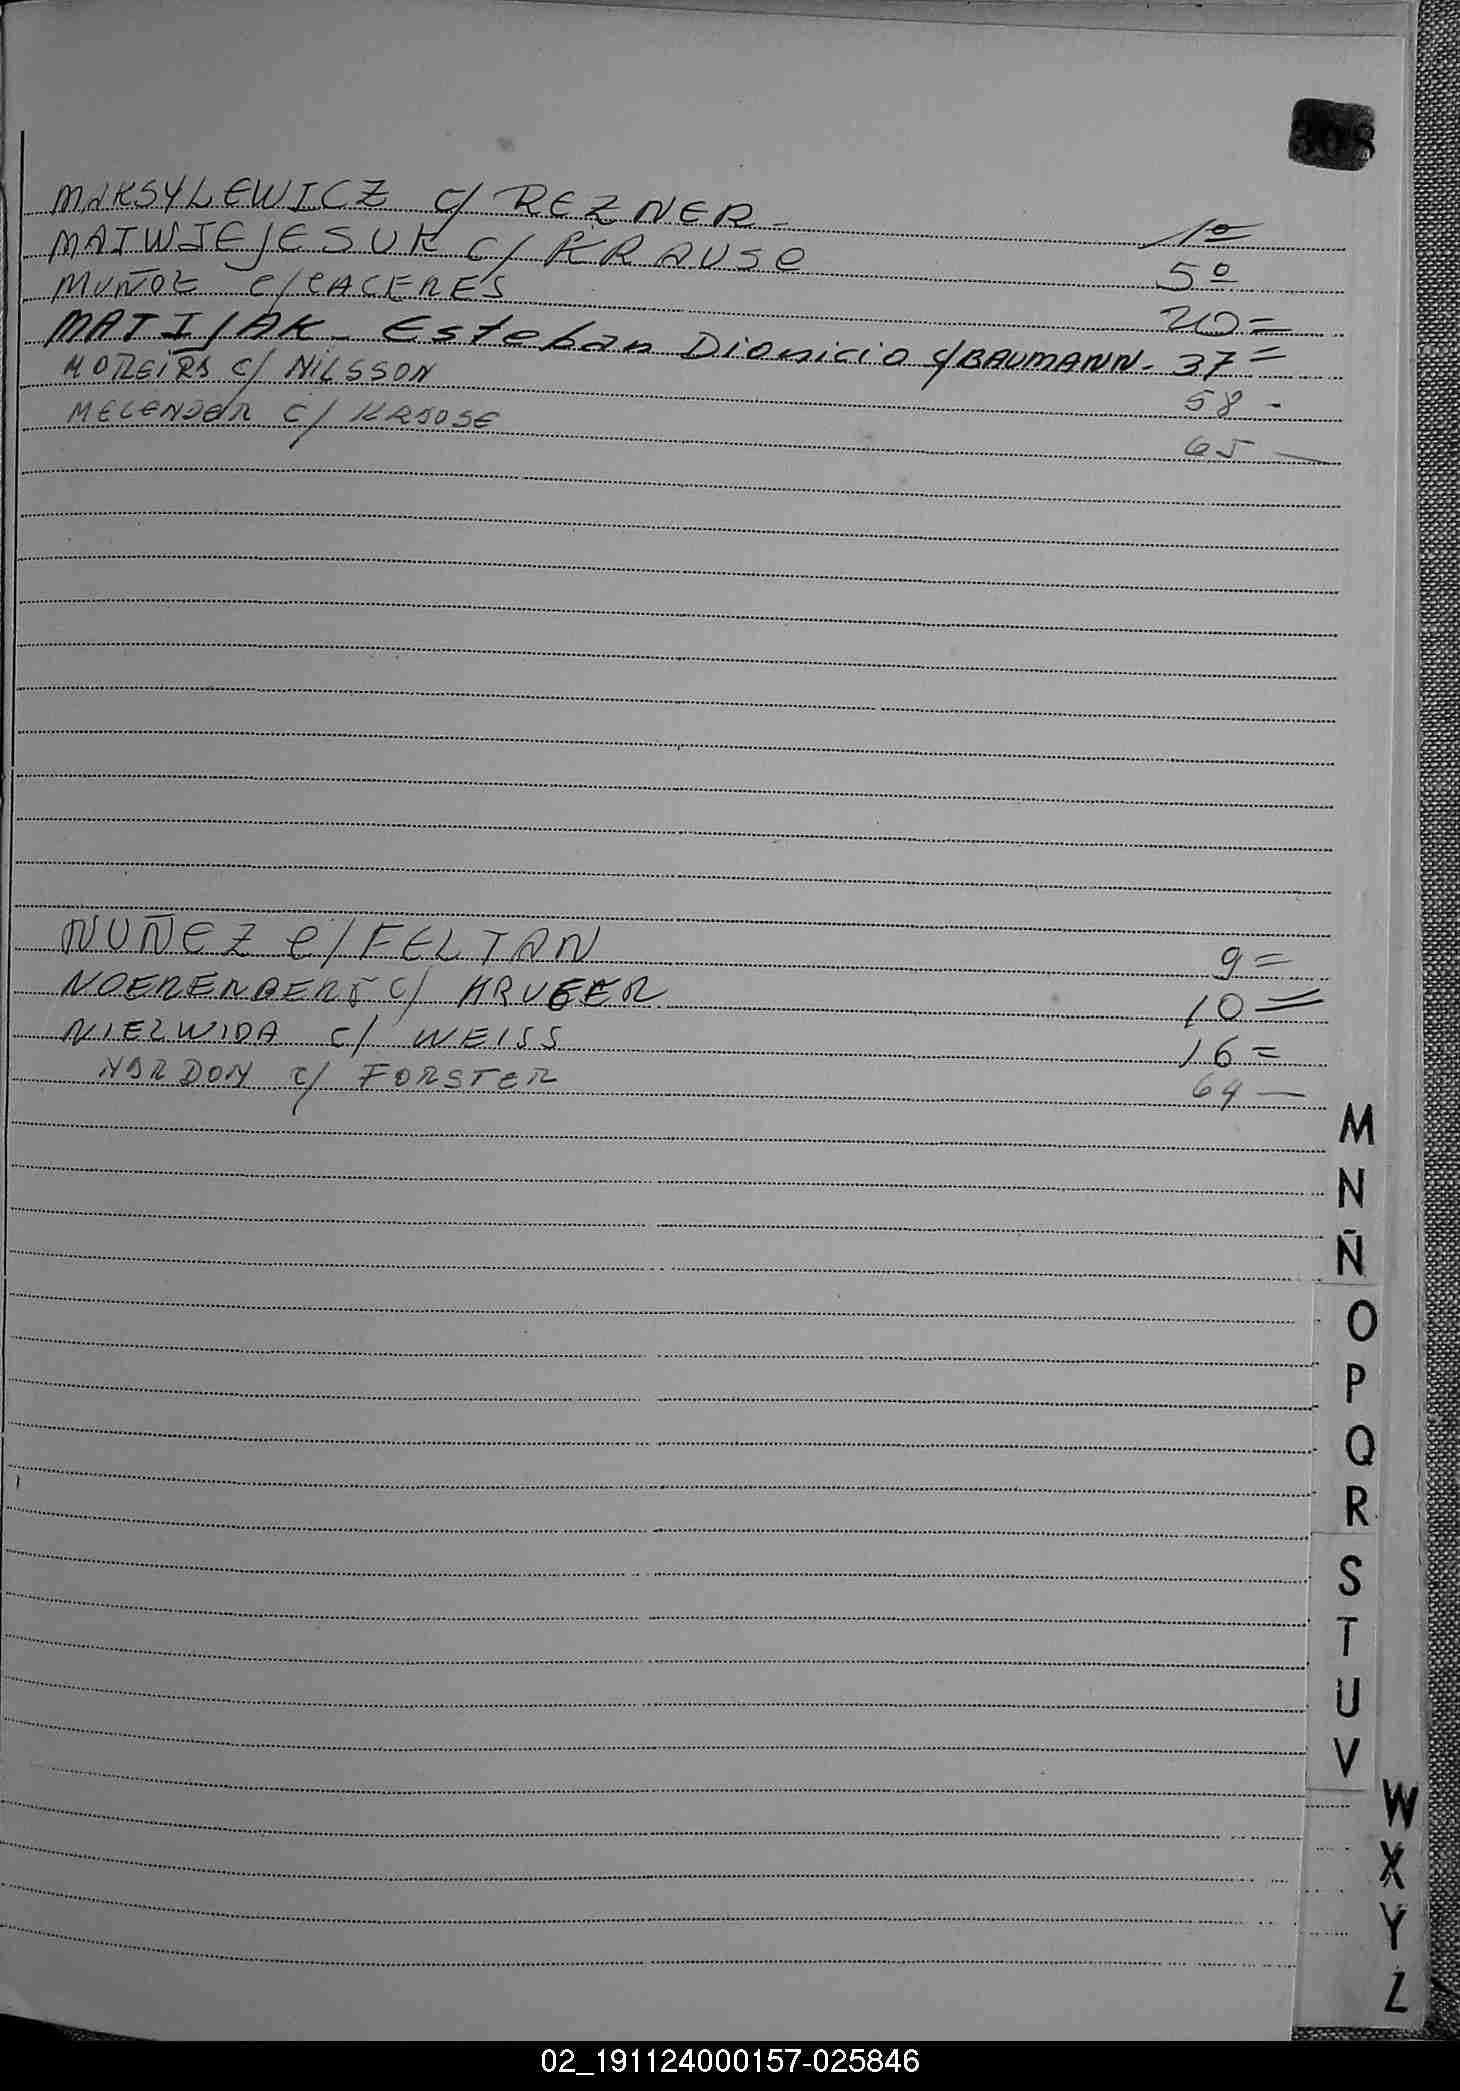 308
MAKSYLEWICZ c/ REZNER- 1º
MATWIEJESUK c/ KRAUSE 5º
MUÑOZ c/ CACERES 20=
MATIJAK- Esteban Dionicio c/BAUMANN- 37=
MOREIRA c/ NILSSON 58-
MELENDER c/ KRAUSE 65—
NUÑEZ c/ FELTAN 9=
NOERENBERG c/ KRUGER 10=
NIEZWIDA c/ WEISS 16=
NARDON c/ FORSTER 64—
M
N
Ñ
O
P
Q
R
S
T
U
V
W
X
Y
Z
02_191124000157-025846